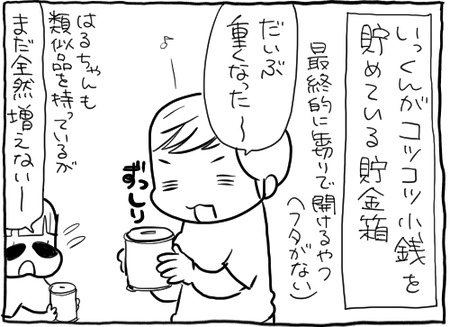 いっくんがコツコツ小銭を
貯めている貯金箱
最終的に缶切りで開けるやつ
(フタがない)
だいぶ
重くなった〜
ずっしり
はるちゃんも
類似品を持っているが
まだ全然増えない〜